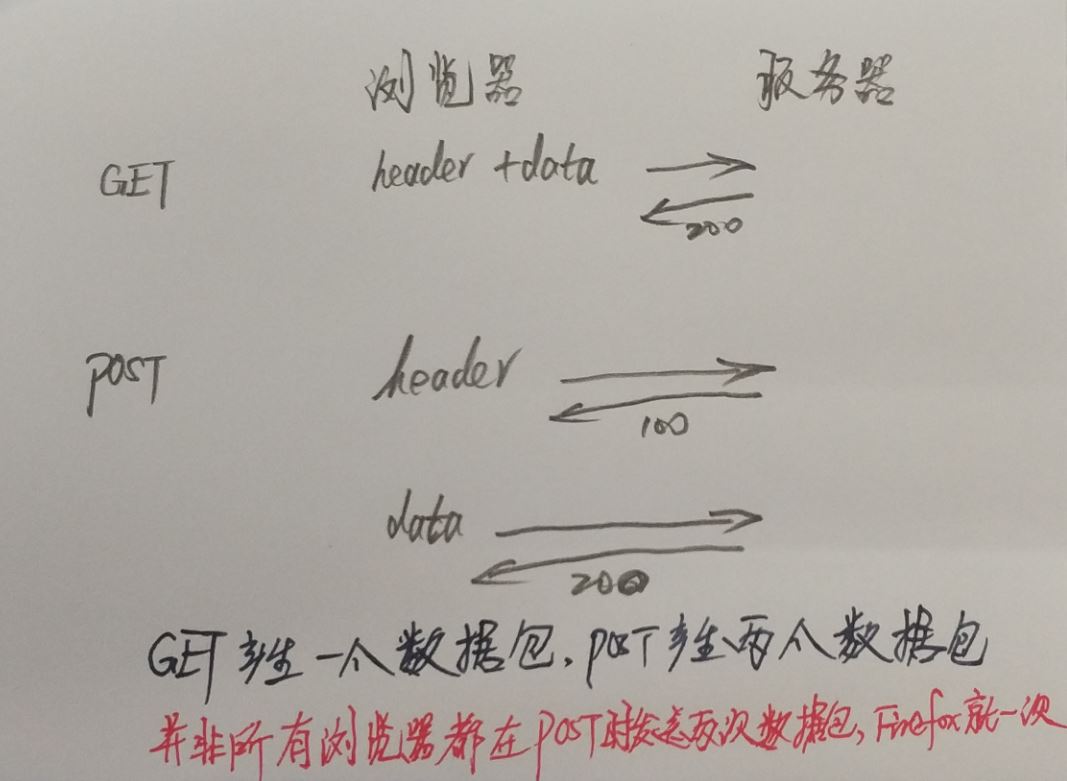 浏览器 服务器
GET header +data
200
POST header
100
data
200
GET产生一个数据包,POST产生两个数据包
并非所有浏览器都在POST时发送两次数据包,Firefox就一次